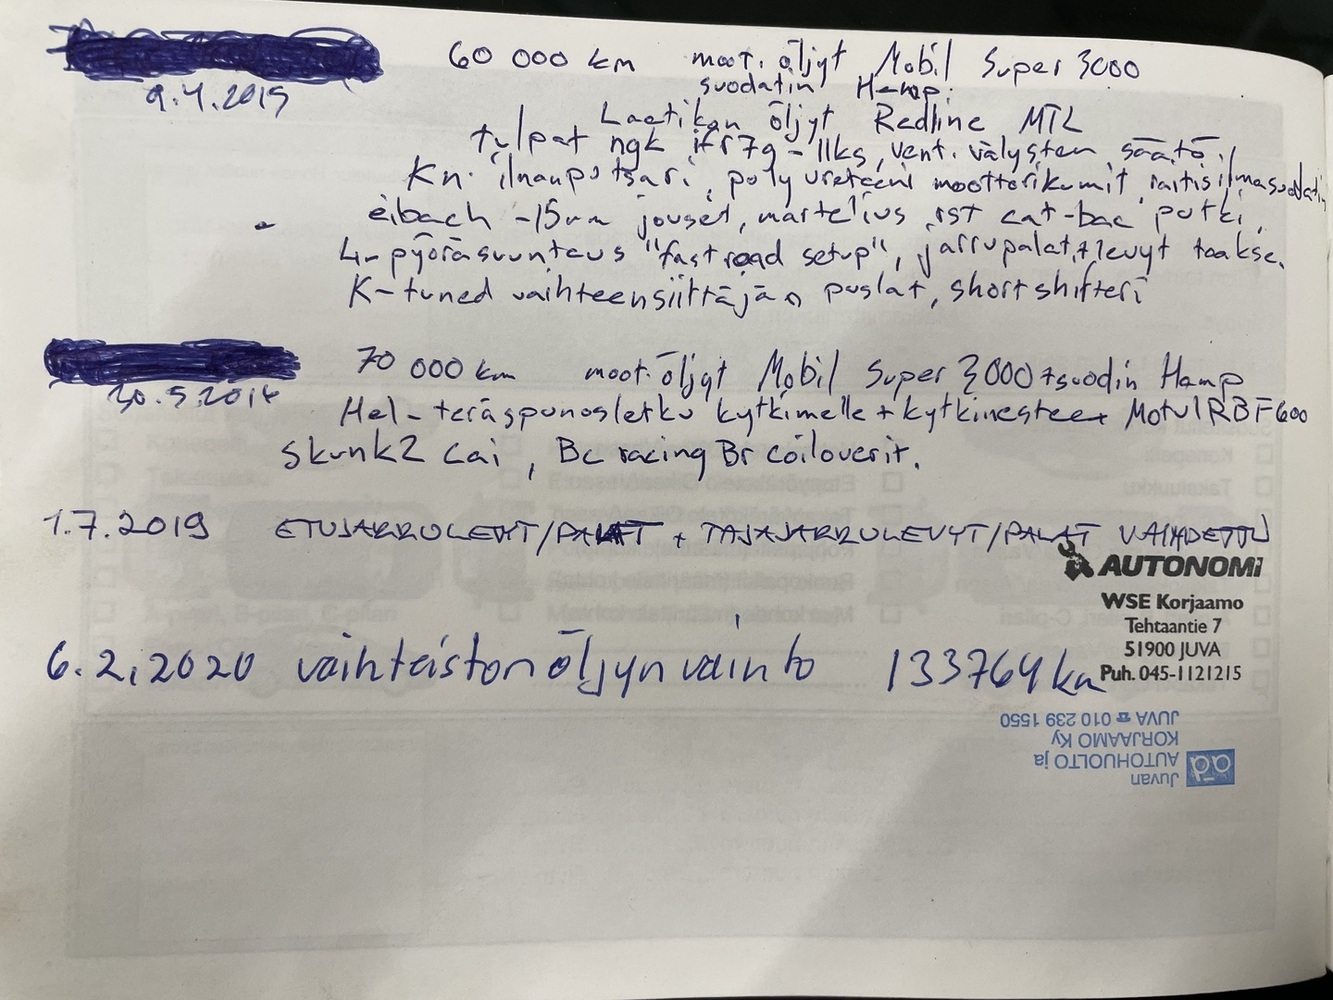 60 000 km moot. öljyt Mobil Super 3000
9.4.2015 suodatin Hamp.
Laatikon öljyt Redline MTL
tulpat ngk ifr7g-11ks, vent. välysten säätö,
Kn. ilmanputsari, poly ureteeni moottorikumit, raitisilmasuodatin
eibach -15mm jouset, martelius rst cat-bac putki,
4-pyöräsuuntaus "fast road setup", jarrupalat + levyt taakse.
K-tuned vaihteensiirtäjän puslat, short shifteri
70 000 km moot. öljyt Mobil Super 3000 + suodin Hamp
Hel-teräspunosletku kytkimelle + kytkinesteet Motul RBF600
skunk2 cai, Bc racing Br coiloverit.
1.7.2019 ETUJARRULEVYT/PALAT + TAJAJARRULEVYT/PALAT VAIHDETTU
AUTONOMi
WSE Korjaamo
Tehtaantie 7
51900 JUVA
6.2.2020 vaihteiston öljyn vaihto 133764 km Puh. 045-1121215
ad Juvan
AUTOHUOLTO ja
KORJAAMO Ky
JUVA ☎ 010 239 1550